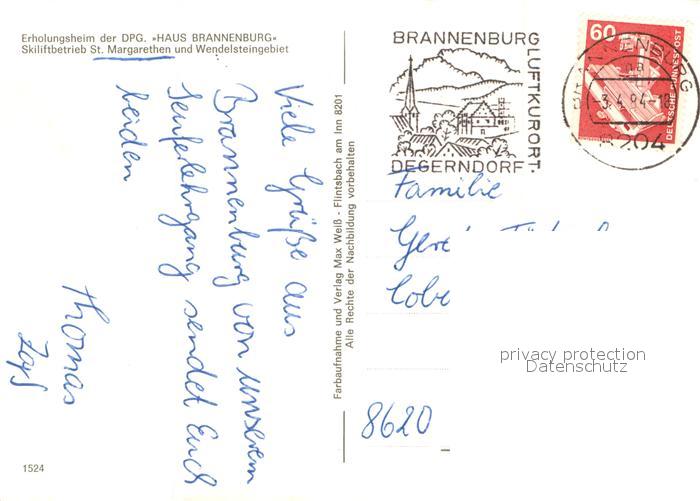 Erholungsheim der DPG. »HAUS BRANNENBURG«
Skiliftbetrieb St. Margarethen und Wendelsteingebiet
Viele Grüße aus
Brannenburg von unserem
lehrgang sendet Euch
beiden
Thomas
1524
Farbaufnahme und Verlag Max Weiß - Flintsbach am Inn 8201
Alle Rechte der Nachbildung vorbehalten
BRANNENBURG
LUFTKURORT
DEGERNDORF
60
DEUTSCHE BUNDESPOST
BRANNENBURG
-3.4.84-18
8204
Familie
Ger
Cobe
8620
privacy protection
Datenschutz